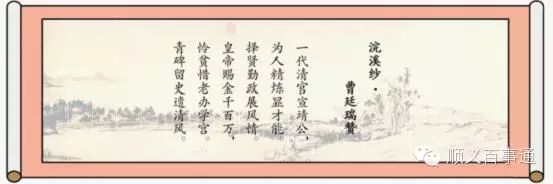 浣溪纱·
曹廷瑞赞
一代清官宣靖公，
为人精炼显才能。
择贤勤政展风情。
皇帝赐金千百万，
怜贫惜老办学宫。
青碑留史遗清风。
顺义百事通